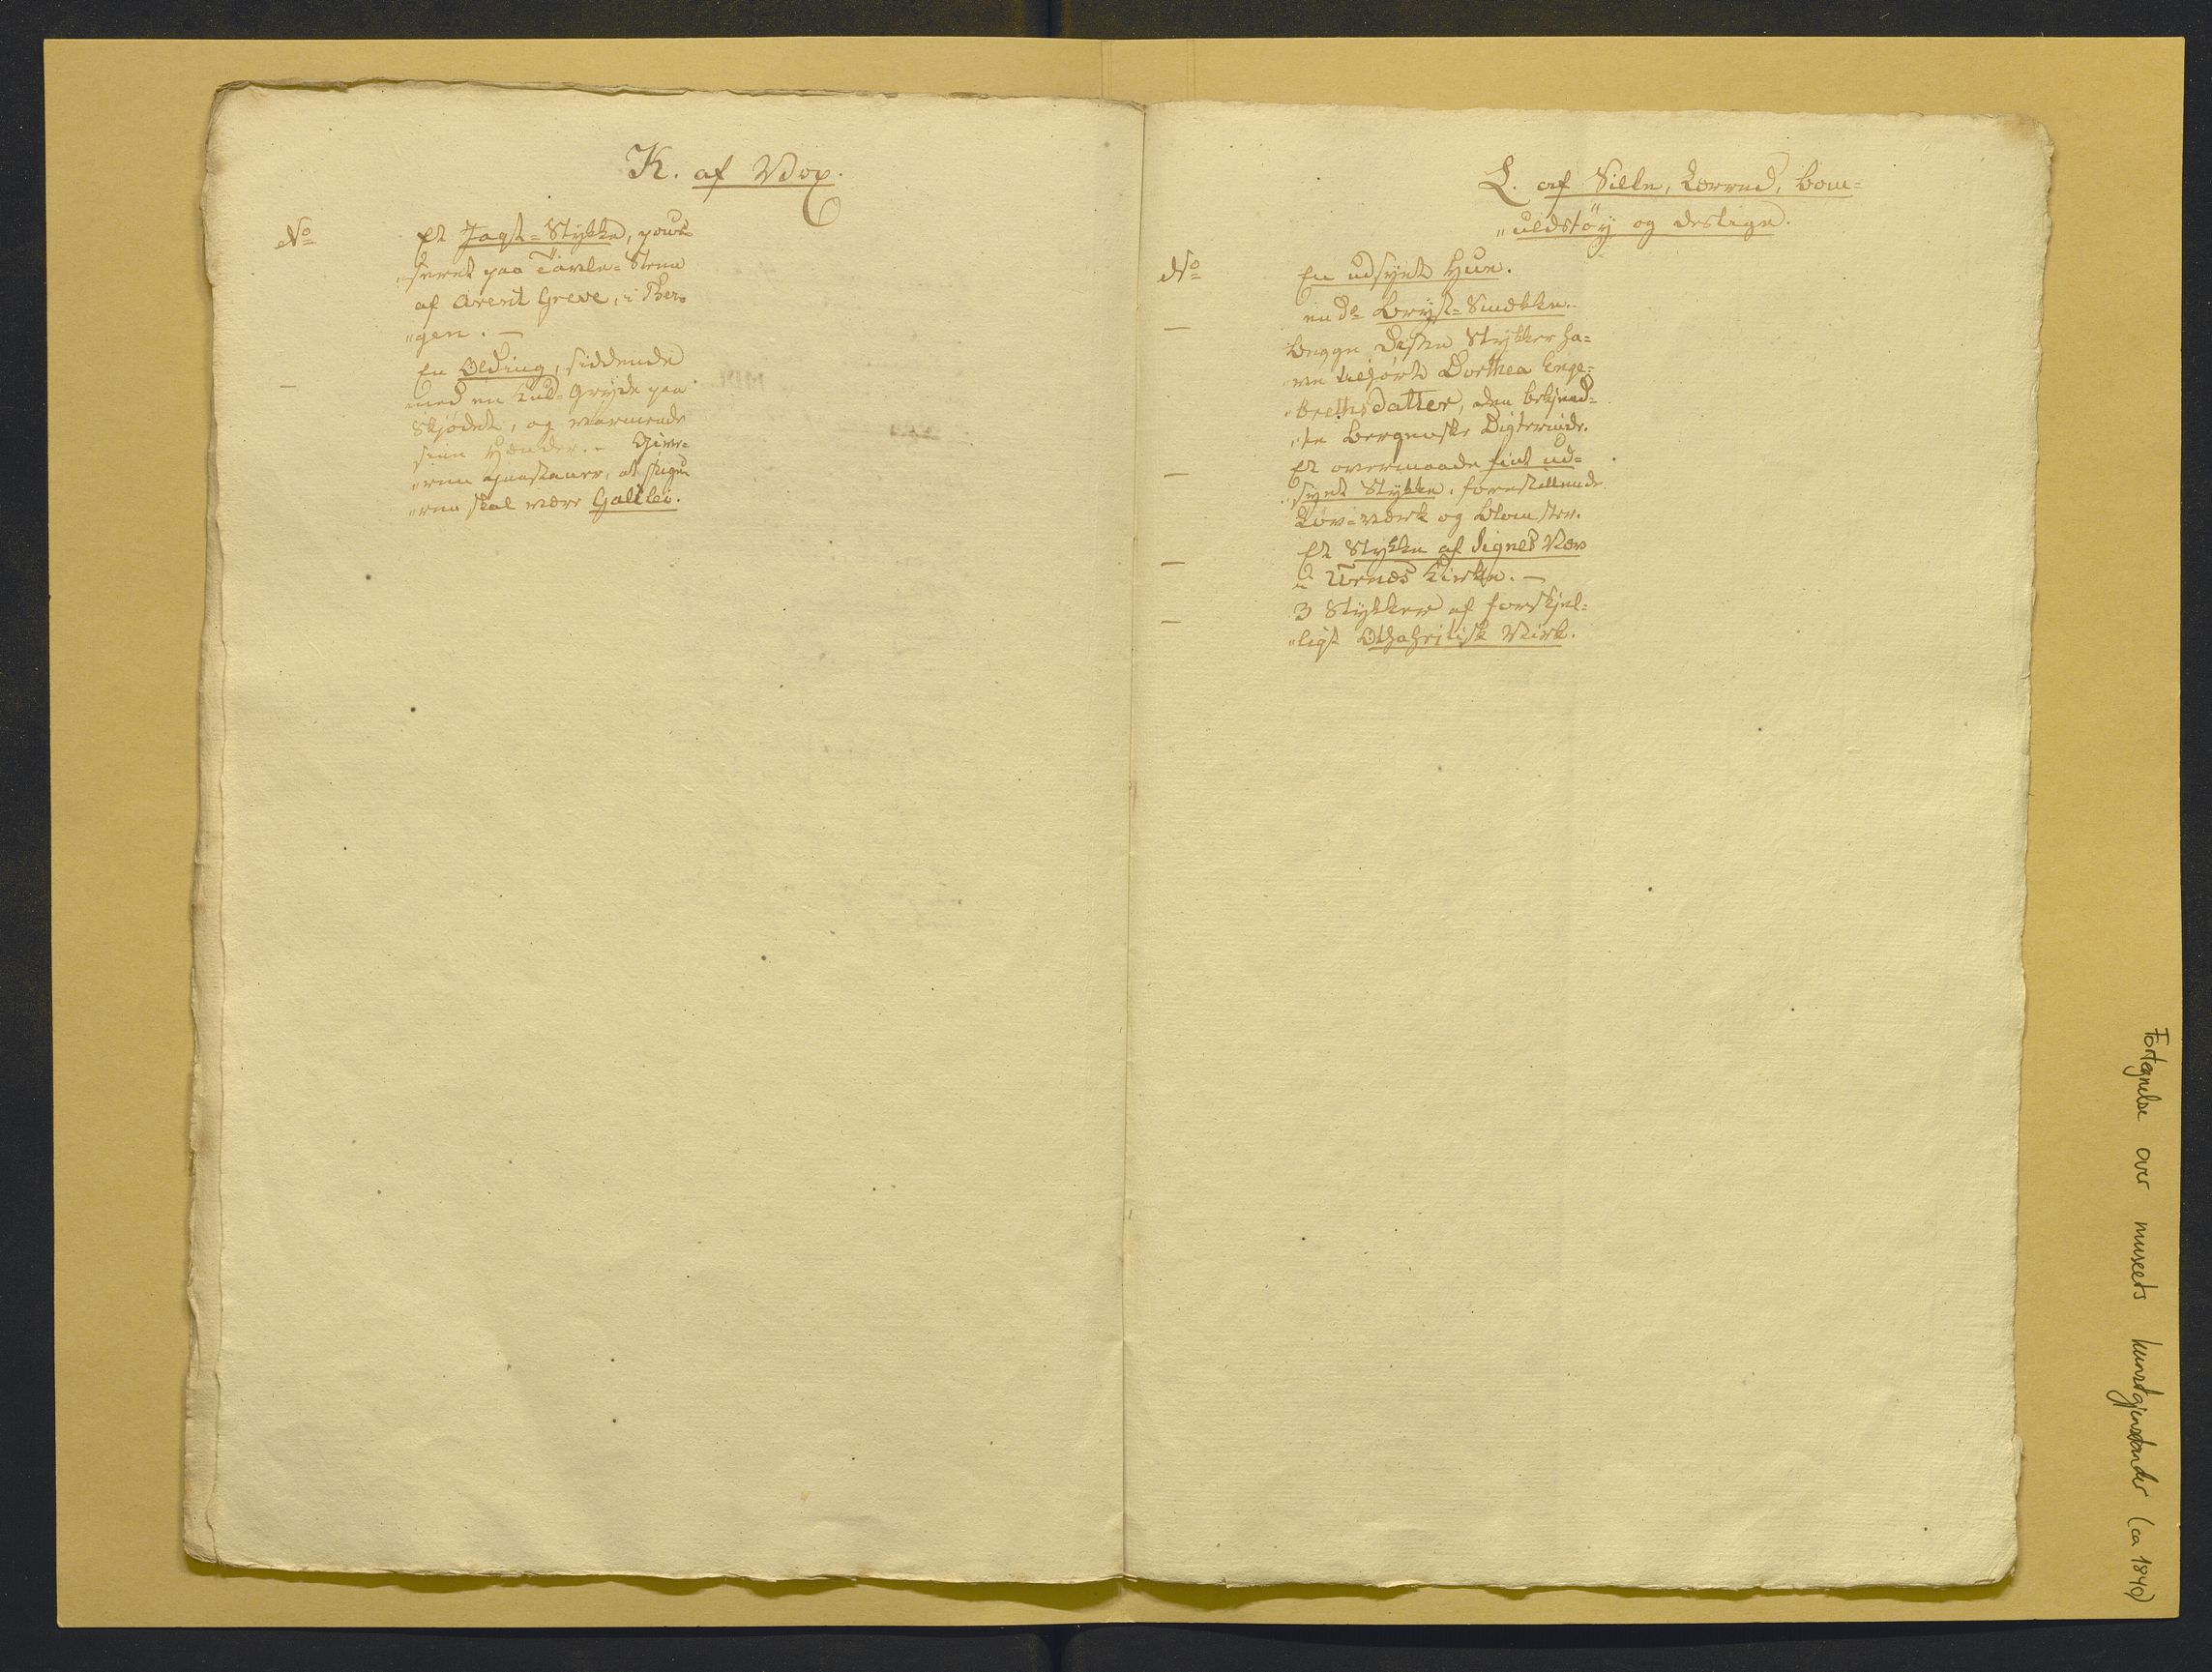 K. af Vox.
No
Et Jagt=Stykke, pous=
"seret paa Tavle=Steen
af Arent Greve, i Ber=
"gen. —
— En Olding, siddende
med en Kul=Gryde paa
Skjødet, og varmende
sine Hænder. - Give=
"ren
at Figu
"ren skal være Galilei.
L. af Silke, Lærred, Bom=
"uldstöy og deslige.
No
En udsyet Hue.
— en do Bryst=Smække.
Begge disse Stykker ha=
"ve tilhørt Dorthea Enge=
"brethsdatter, den bekjend=
"te Bergenske Digterinde.
— Et overmaade fint ud=
"syet Stykke, forestillende
Löv=værk og Blomster.
— Et Stykke af Signes Væv
i Urnæs Kirke. —
— 3 Stykker af forskjel=
"ligt Othaheitisk Virk.
Fortegnelse over museets kunstgjenstander (ca 1840)